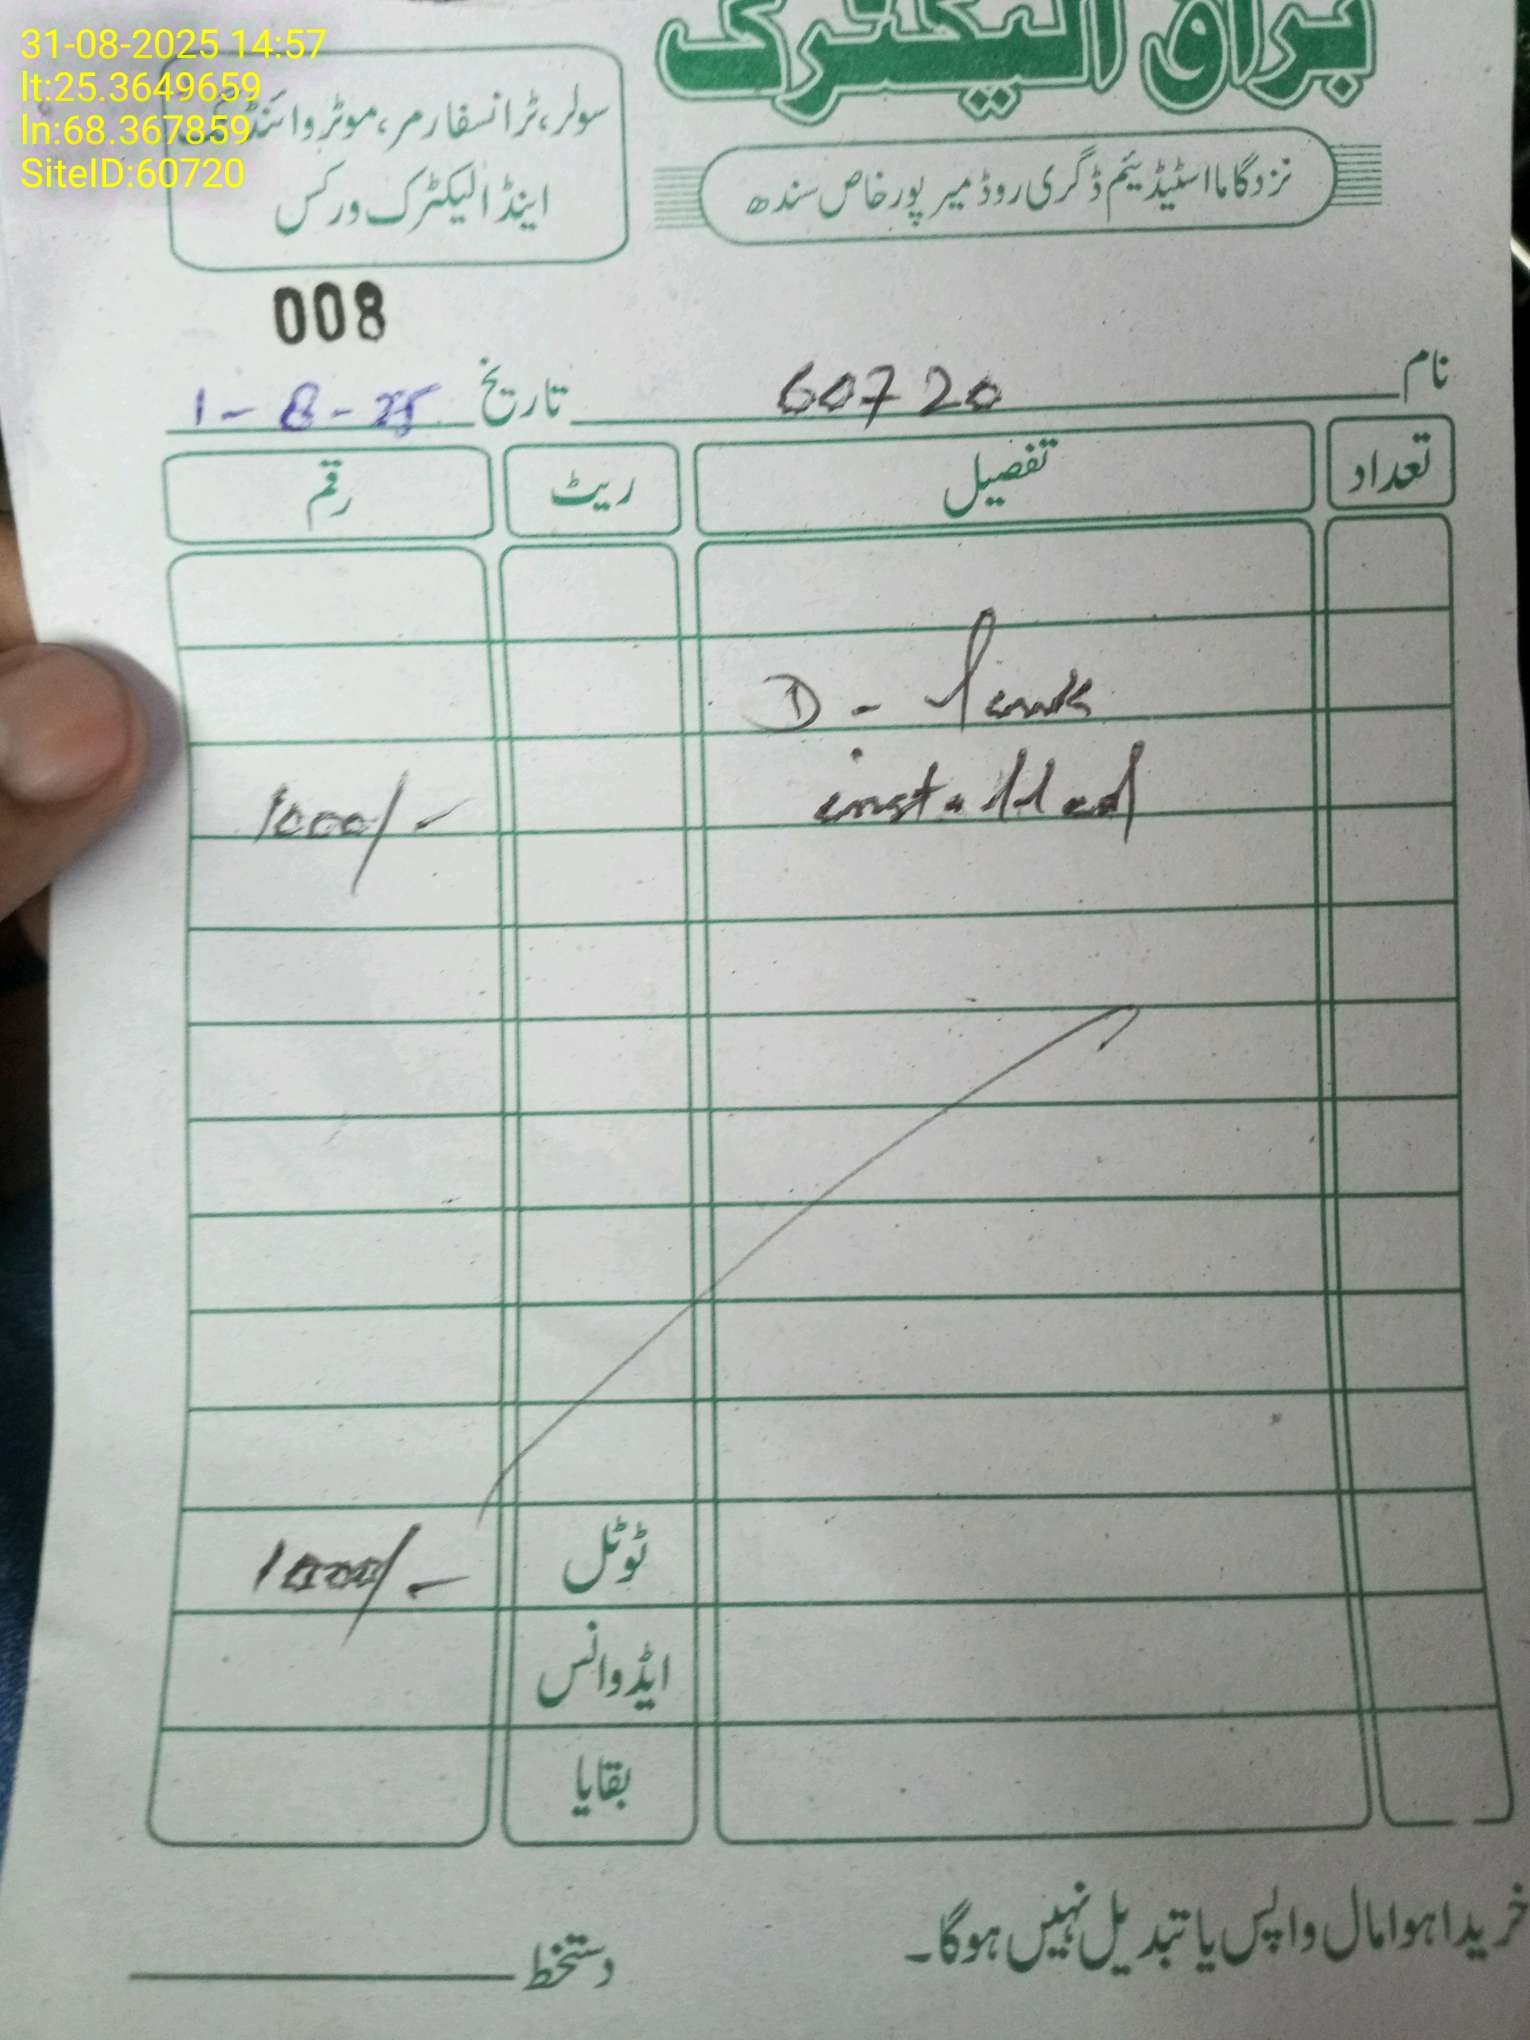 31-08-2025 14:57
lt:25.3649659
ln:68.367859
SiteID:60720
براق الیکٹرک
سولر، ٹرانسفارمر، موٹر وائنڈنگ
اینڈ الیکٹرک ورکس
نزد گاما اسٹیڈیئم ڈگری روڈ میر پور خاص سندھ
008
نام 60720 تاریخ 1-8-25
تعداد تفصیل ریٹ رقم
D - Tank
installed 1000/-
ٹوٹل 1000/-
ایڈوانس
بقایا
خریدا ہوا مال واپس یا تبدیل نہیں ہوگا۔
دستخط